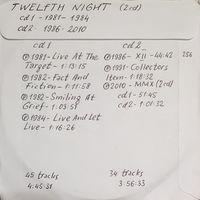 TWELFTH NIGHT (2cd)
cd1 - 1981-1984
cd2 - 1986-2010
cd1
Ⓟ1981-Live At The
Target - 1:13:15
Ⓟ1982-Fact And
Fiction - 1:11:58
Ⓟ1982-Smiling At
Grief - 1:03:51
Ⓟ1984-Live And Let
Live - 1:16:26
45 tracks
4:45:31
cd2
Ⓟ1986-XII-44:42
Ⓟ1991-Collectors
Item-1:18:32
Ⓟ2010-MMX (2cd)
cd1-51:45
cd2-1:01:32
34 tracks
3:56:33
256